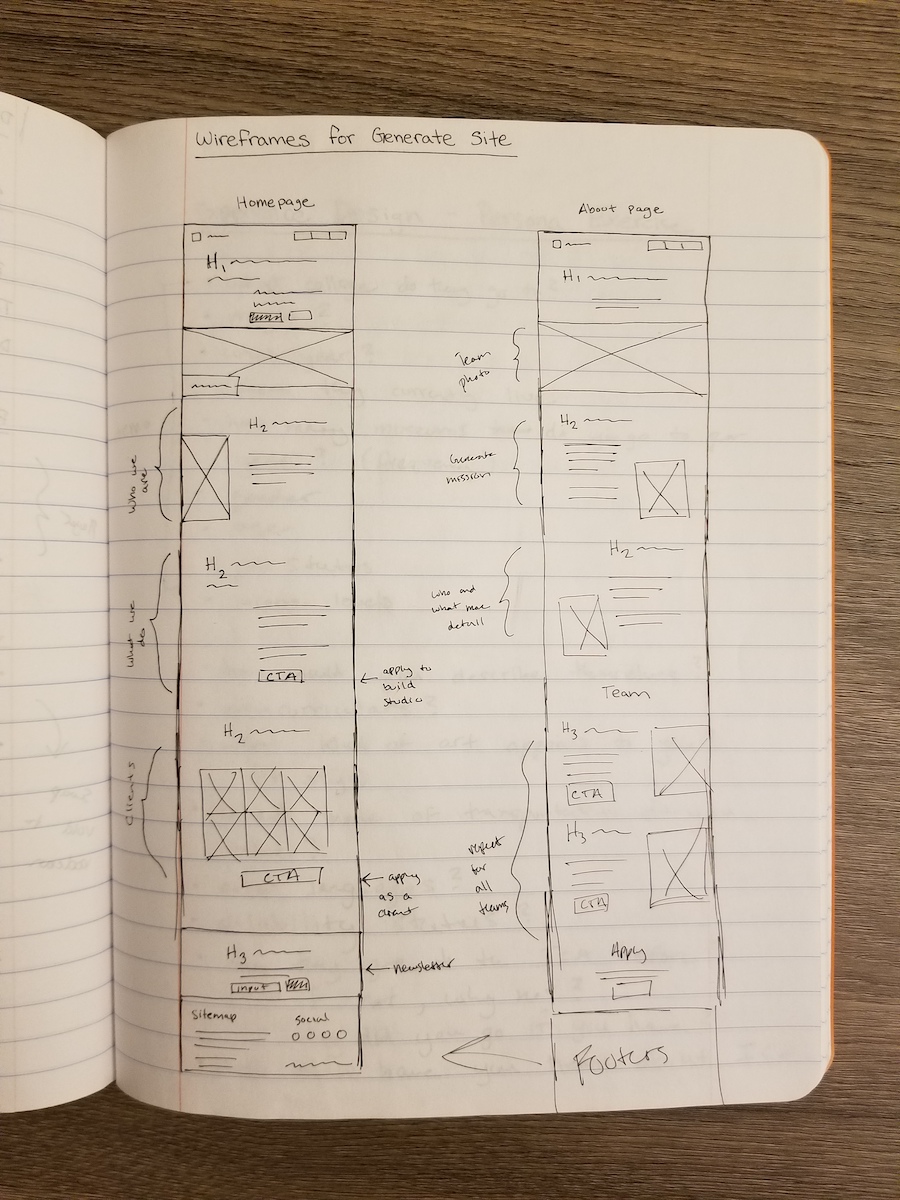 Wireframes for Generate Site
Homepage
H1
Who we
are
H2
What we
do
H2
CTA
apply to
build
studio
Clients
H2
CTA
apply
as a
client
H3
newsletter
input
Sitemap
social
About page
H1
Team
photo
H2
Generate
mission
H2
who and
what more
detail
Team
H3
CTA
H3
CTA
repeat
for
all
teams
Apply
Footers